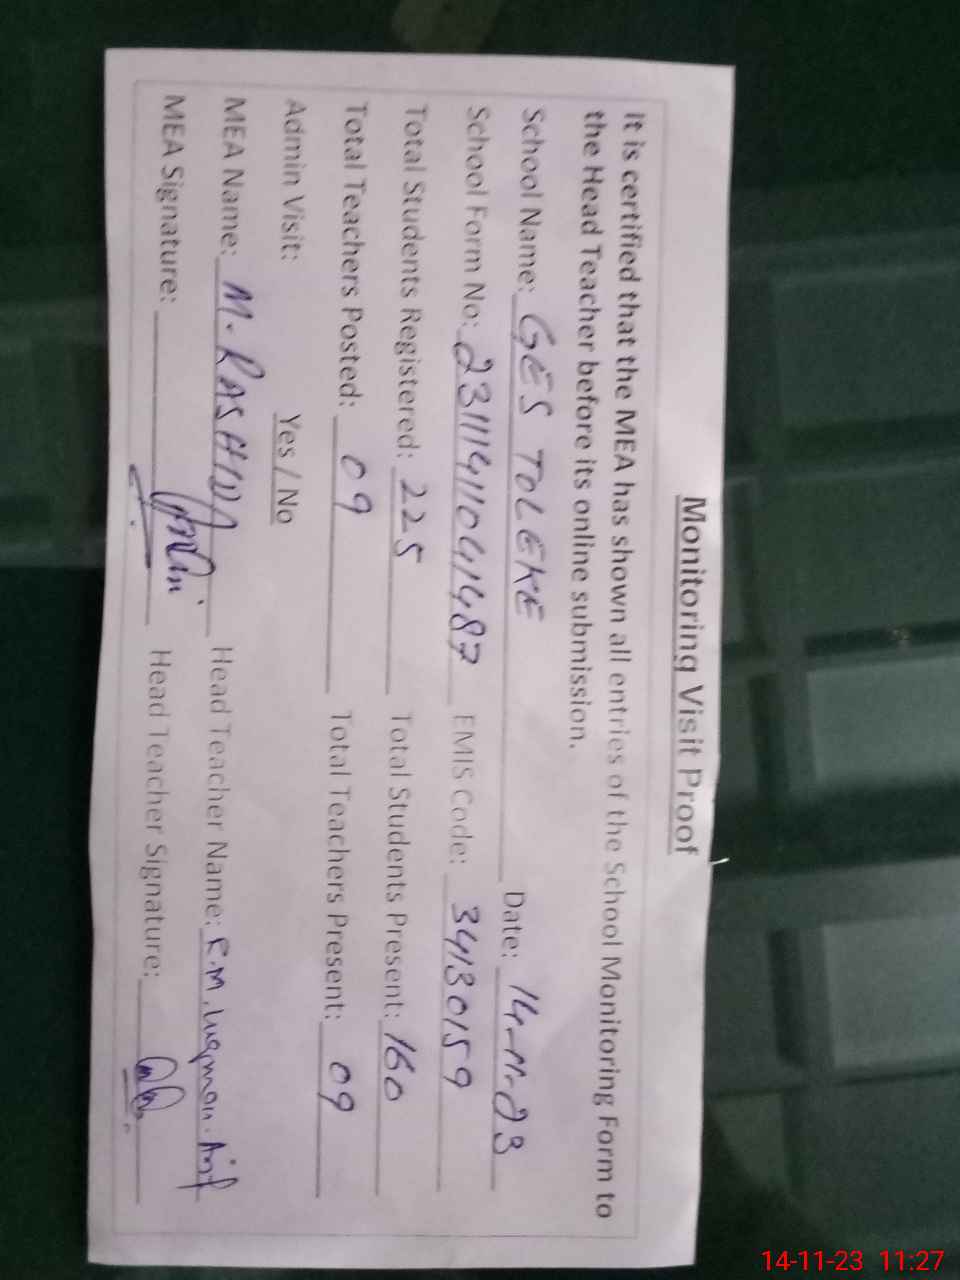 Monitoring Visit Proof
It is certified that the MEA has shown all entries of the School Monitoring Form to
the Head Teacher before its online submission.
School Name: GES TOLEKE Date: 14-11-23
School Form No: 23111411041487 EMIS Code: 34130159
Total Students Registered: 225 Total Students Present: 160
Total Teachers Posted: 09 Total Teachers Present: 09
Admin Visit: Yes / No
MEA Name: M. RASHID Head Teacher Name: R.M. Luqman. Arif
MEA Signature: Head Teacher Signature:
14-11-23 11:27